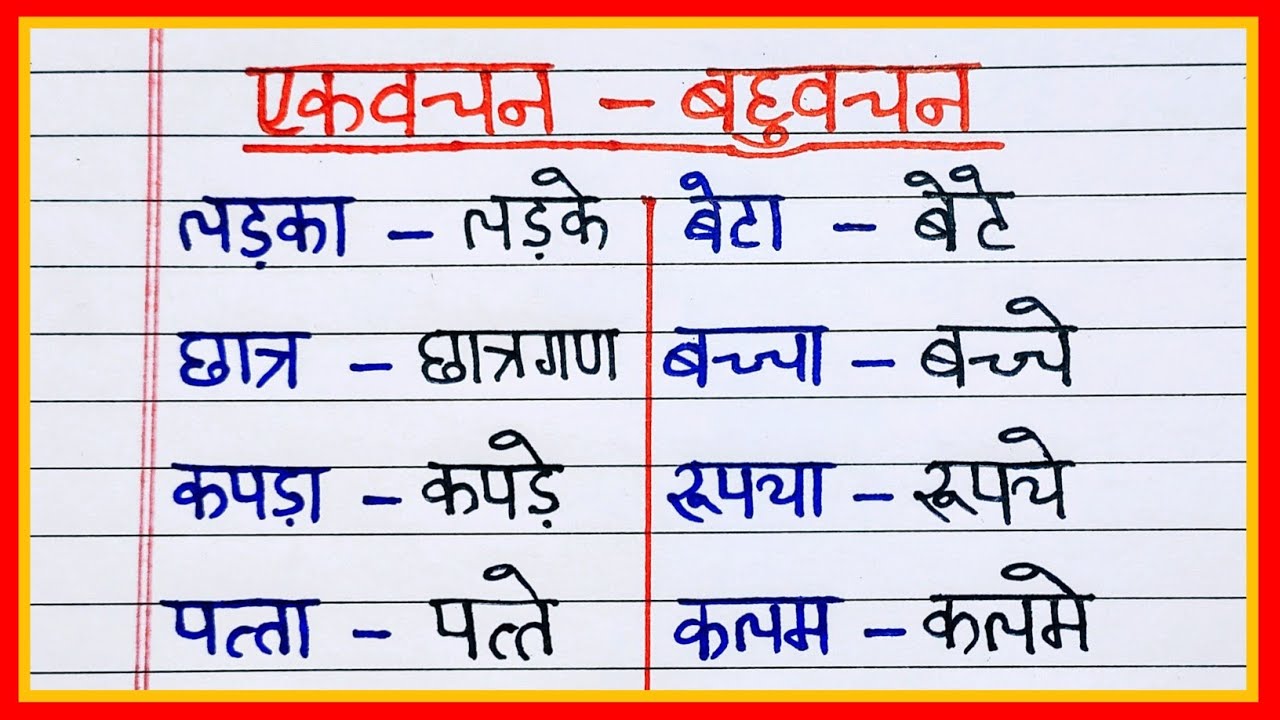 एकवचन – बहुवचन
लड़का – लड़के बेटा – बेटे
छात्र – छात्रगण बच्चा – बच्चे
कपड़ा – कपड़े रूपया – रूपये
पत्ता – पत्ते कलम – कलमे